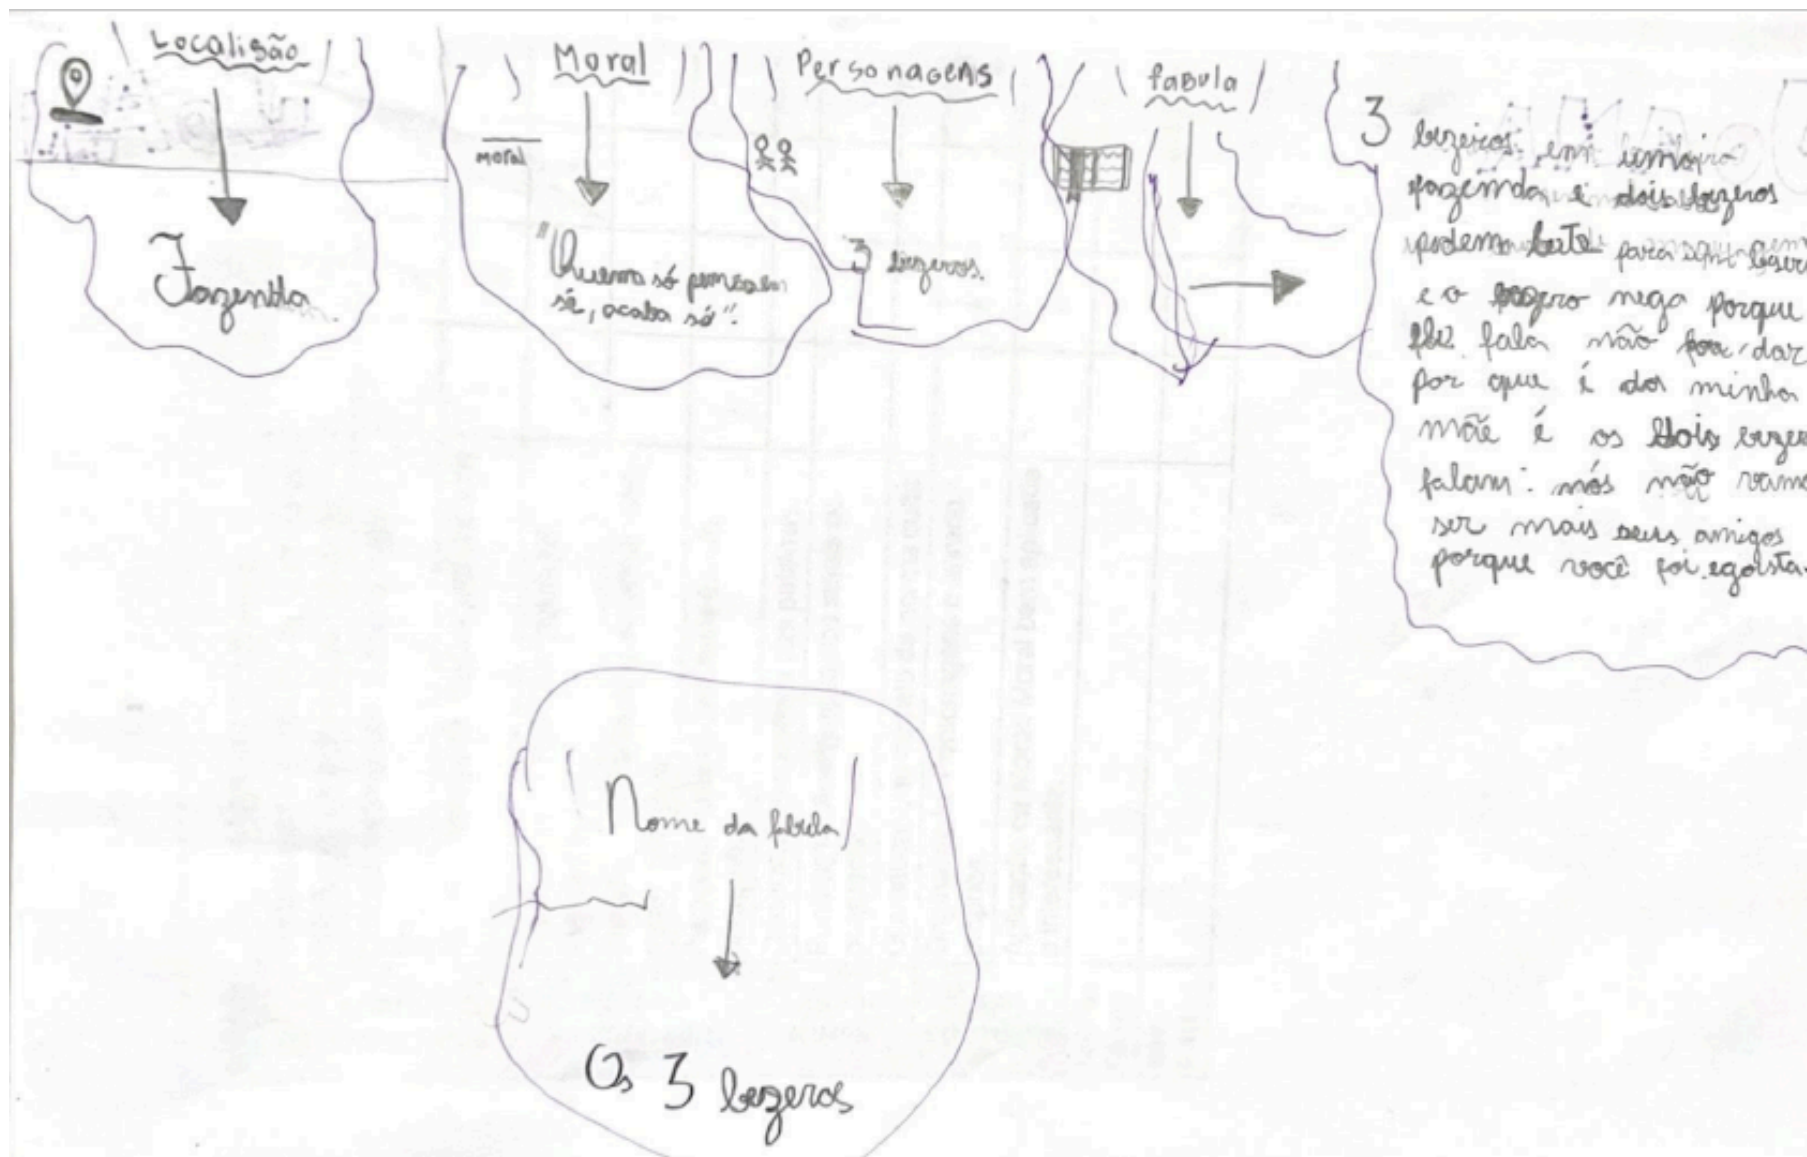 Localisão
Fazenda
Moral
moral
"Quem só pensa em
si, acaba só".
Personagens
3 bezeros.
fabula
3
bezeiros em uma
fazenda e dois bezeros
podem leite para
e o bezero nega porque
ele fala não dar
por que é da minha
mãe é os dois
falam: nós não
ser mais seus amigos
porque você foi egoista
Nome da fabula
Os 3 bezeros